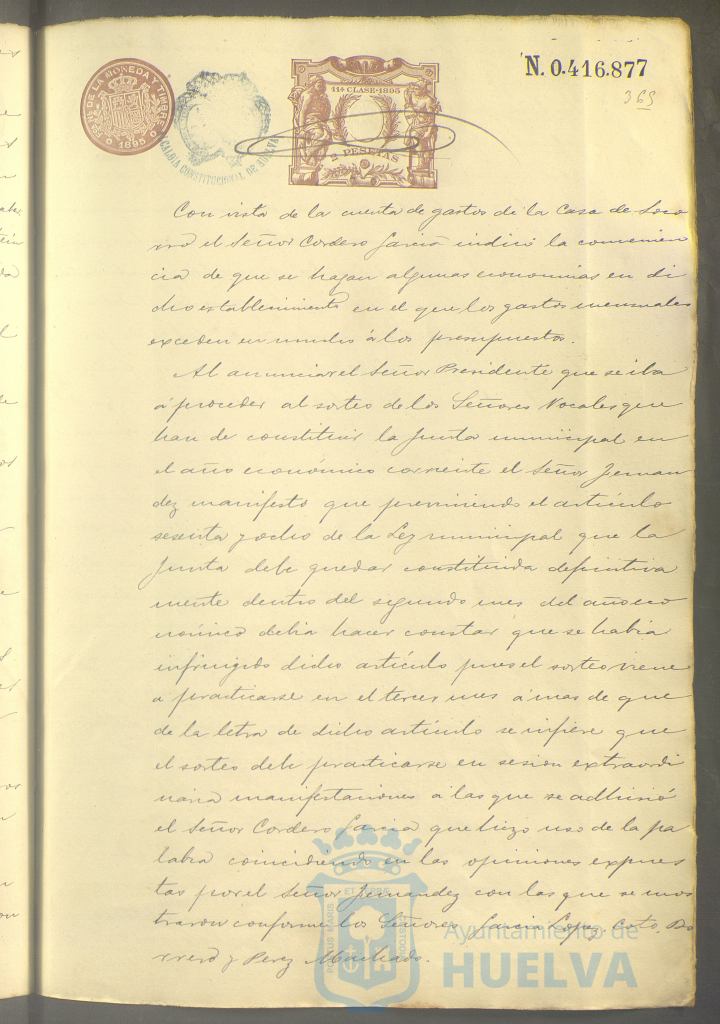 Fca. NAL. DE LA MONEDA Y TIMBRE
1895
ALCALDIA CONSTITUCIONAL DE HUELVA
11ª CLASE-1895
2 PESETAS
N. 0.416.877
365
Con vista de la cuenta de gastos de la Casa de Soco
rro el Señor Cordero Garcia indicó la convenien
cia de que se hagan algunas economias en di
cho establecimiento en el que los gastos mensuales
exceden en mucho á los presupuestos.
Al anunciar el Señor Presidente que se iba
á proceder al sorteo de los Señores Vocales que
han de constituir la Junta municipal en
el año económico corriente el Señor Jernan
dez manifesto que previniendo el artículo
sesenta y ocho de la Ley municipal que la
Junta debe quedar constituida definitiva
mente dentro del segundo mes del año eco
nómico debia hacer constar que se habia
infringido dicho artículo pues el sorteo viene
a practicarse en el tercer mes á mas de que
de la letra de dicho artículo se infiere que
el sorteo debe practicarse en sesion extraordi
naria manifestaciones a las que se adhirió
el Señor Cordero Garcia que hizo uso de la pa
labra coincidiendo en las opiniones expues
tas por el Señor Jernandez con las que se mos
traron conforme los Señores Garcia Lopez, Coto, Bo
rrero y Perez Machado.
PORTUS MARIS ET TERRE CUSTODIA
Ayuntamiento de
HUELVA